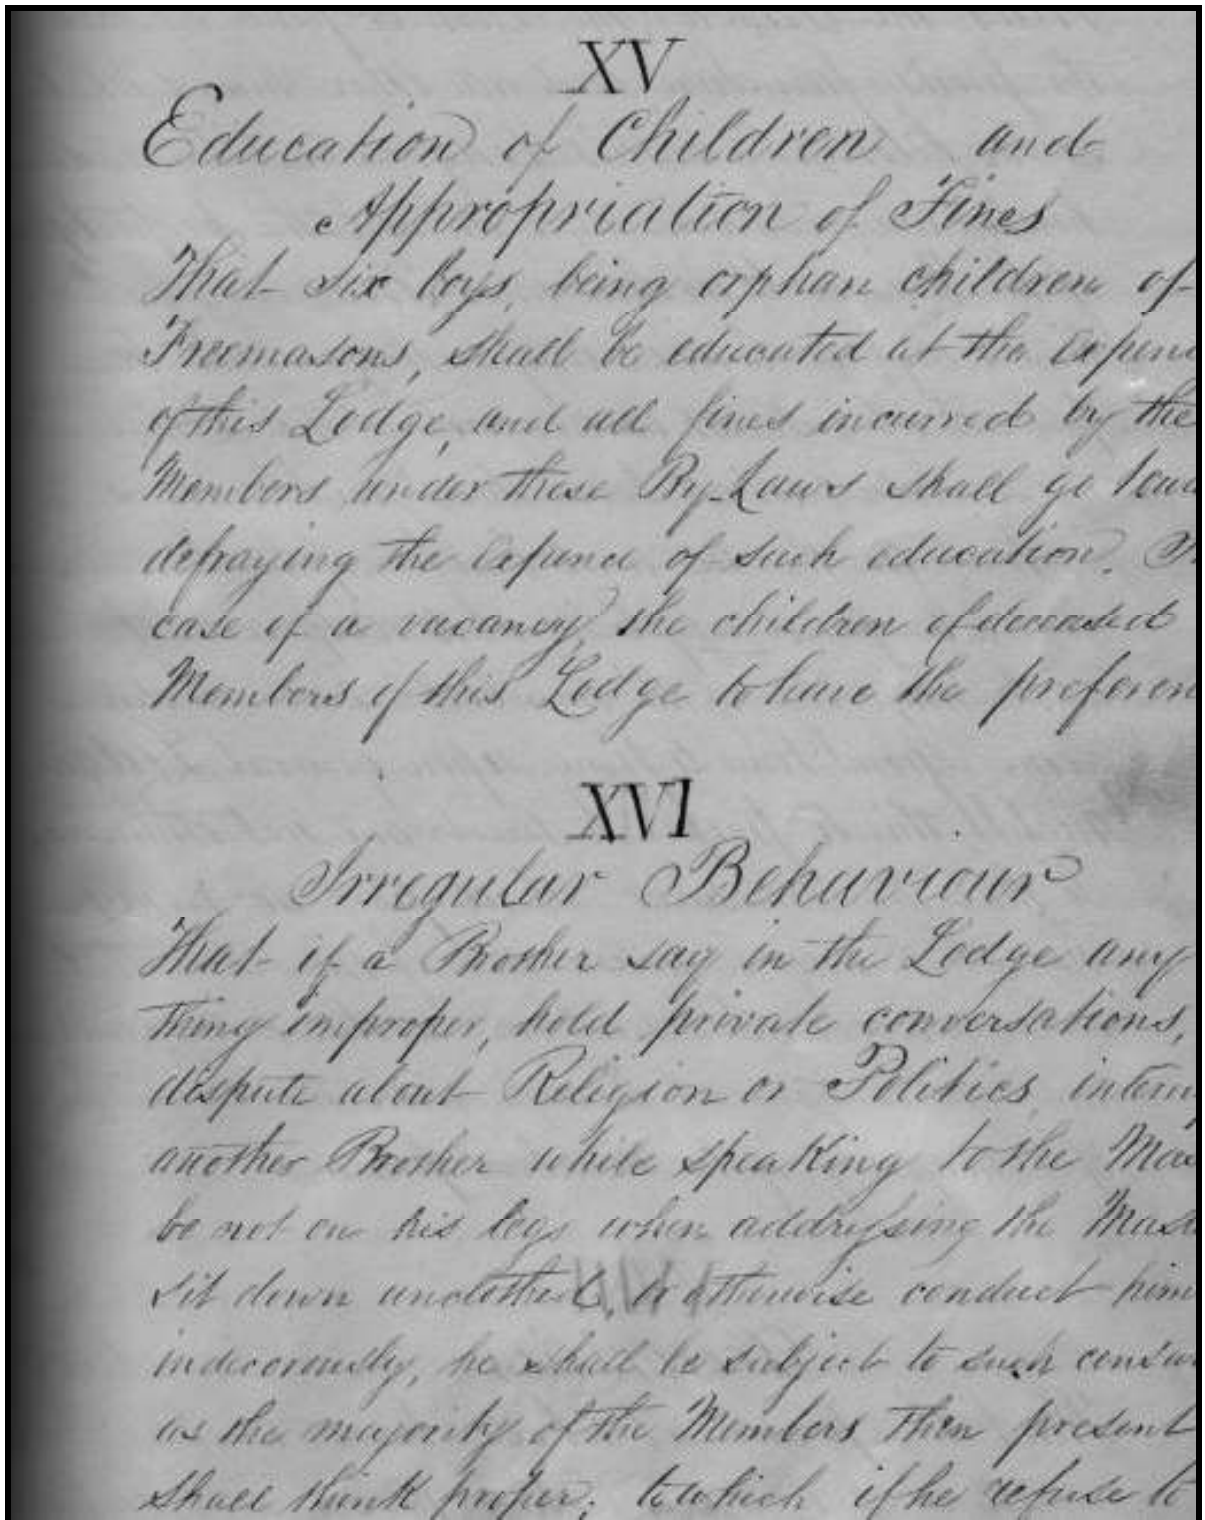 XV
Education of Children and
Appropriation of Fines
That six boys, being orphan children of
Freemasons, shall be educated at the Expen
of this Lodge, and all fines incurred by the
Members under these By-Laws shall go towa
defraying the Expence of such education. In
case of a vacancy, the children of deceased
Members of this Lodge to have the preferen
XVI
Irregular Behaviour
That if a Brother say in the Lodge any
thing improper, hold private conversations,
dispute about Religion or Politics, interru
another Brother while speaking to the Mas
be not on his legs when addressing the Mast
sit down unclothed, or otherwise conduct him
indecorously, he shall be subject to such censur
as the majority of the Members then present
shall think proper; to which if he refuse to